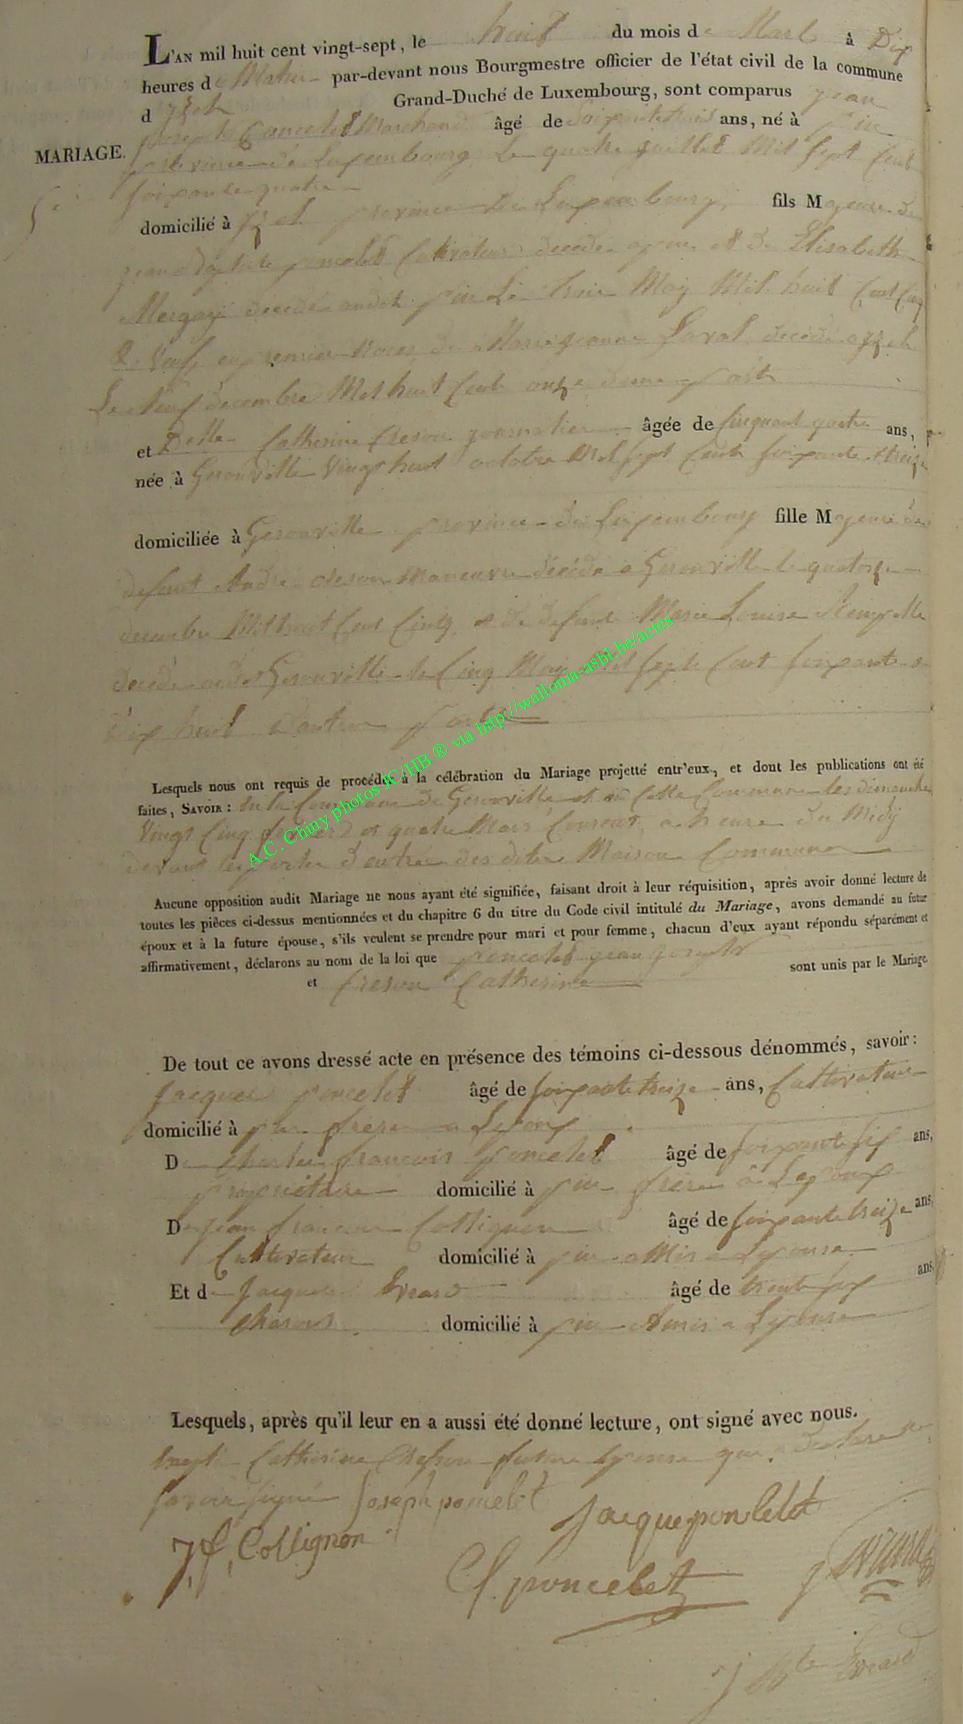 L'AN mil huit cent vingt-sept, le huit du mois de Mars à Dix
heures du Matin par-devant nous Bourgmestre officier de l'état civil de la commune
d Izel Grand-Duché de Luxembourg, sont comparus jean
joseph Poncelet Marchand âgé de Soixante trois ans, né à Pin
MARIAGE.
province de Luxembourg Le quatre juillet Mil Sept Cent
soixante quatre
domicilié à Izel province de Luxembourg, fils Majeur de
jean Baptiste poncelet Cultivateur décédé a pin et de Elisabeth
décédé audit pin Le trois May Mil huit Cent Cinq
& Veuf en premier Noces de Marie jeanne Laval décédé a Izel
Le Neuf decembre Mil huit Cent onze d'une part
et Delle Catherine Creson journaliere âgée de Cinquant quatre ans,
née à Gerouville Vingt huit octobre Mil Sept Cent soixante treize
domiciliée à Gerouville province de Luxembourg fille Majeure de
defunt André Creson Maneuvre décédé a Gerouville le quatorze
decembre Mil huit Cent Cinq et de defunte Marie Louise
décédé audit Gerouville le Cinq May Mil Sept Cent soixante
dix huit d'autre part
Lesquels nous ont requis de procéder à la célébration du Mariage projetté entr'eux, et dont les publications ont été
faites, SAVOIR : en la Commune de Gerouville et en Cette Commune les dimanche
Vingt Cinq et quatre Mars Courant a heure du Midy
devant les portes d'entrée des dites Maison Commune
Aucune opposition audit Mariage ne nous ayant été signifiée, faisant droit à leur réquisition, après avoir donné lecture de
toutes les pièces ci-dessus mentionnées et du chapitre 6 du titre du Code civil intitulé du Mariage, avons demandé au futur
époux et à la future épouse, s'ils veulent se prendre pour mari et pour femme, chacun d'eux ayant répondu séparément et
affirmativement, déclarons au nom de la loi que poncelet jean joseph
et Creson Catherine sont unis par le Mariage.
De tout ce avons dressé acte en présence des témoins ci-dessous dénommés, savoir :
Jacques poncelet âgé de soixante treize ans, Cultivateur
domicilié à pin frere a Lepoux
De Charles francois Poncelet âgé de soixante six ans,
propriétaire domicilié à pin frere à Lepoux
De jean francois Collignon âgé de soixante treize ans,
Cultivateur domicilié à pin amis a Lepouse
Et de Jacques Evrard âgé de trente six ans
domicilié à pin Amis a Lepouse
Lesquels, après qu'il leur en a aussi été donné lecture, ont signé avec nous.
Catherine Creson future epouse qui a declaré ne
savoir signé Joseph poncelet
jacque poncelet
J, f, Collignon
C f poncelet
J Bte Evrard
A.C. Chiny photos JC/HB ® via http://wallonia-asbl-be/actes